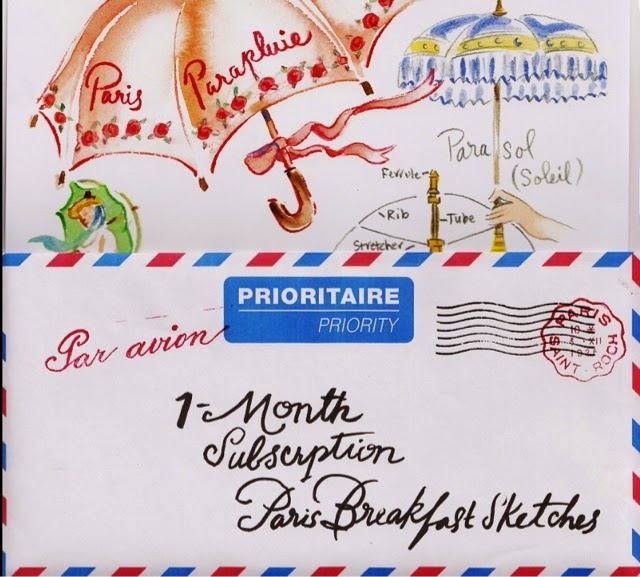 Paris Parapluie
Parasol
(Soleil)
Ferrule
Rib
Tube
Stretcher
PRIORITAIRE
PRIORITY
Par avion
PARIS
ST ROCH
1-Month
Subscrption
Paris Breakfast Sketches